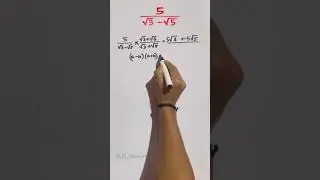 5
√3 - √5
5/(√3-√5) × (√3+√5)/(√3+√5) = 5√3 + 5√5
(a-b)(a+b)